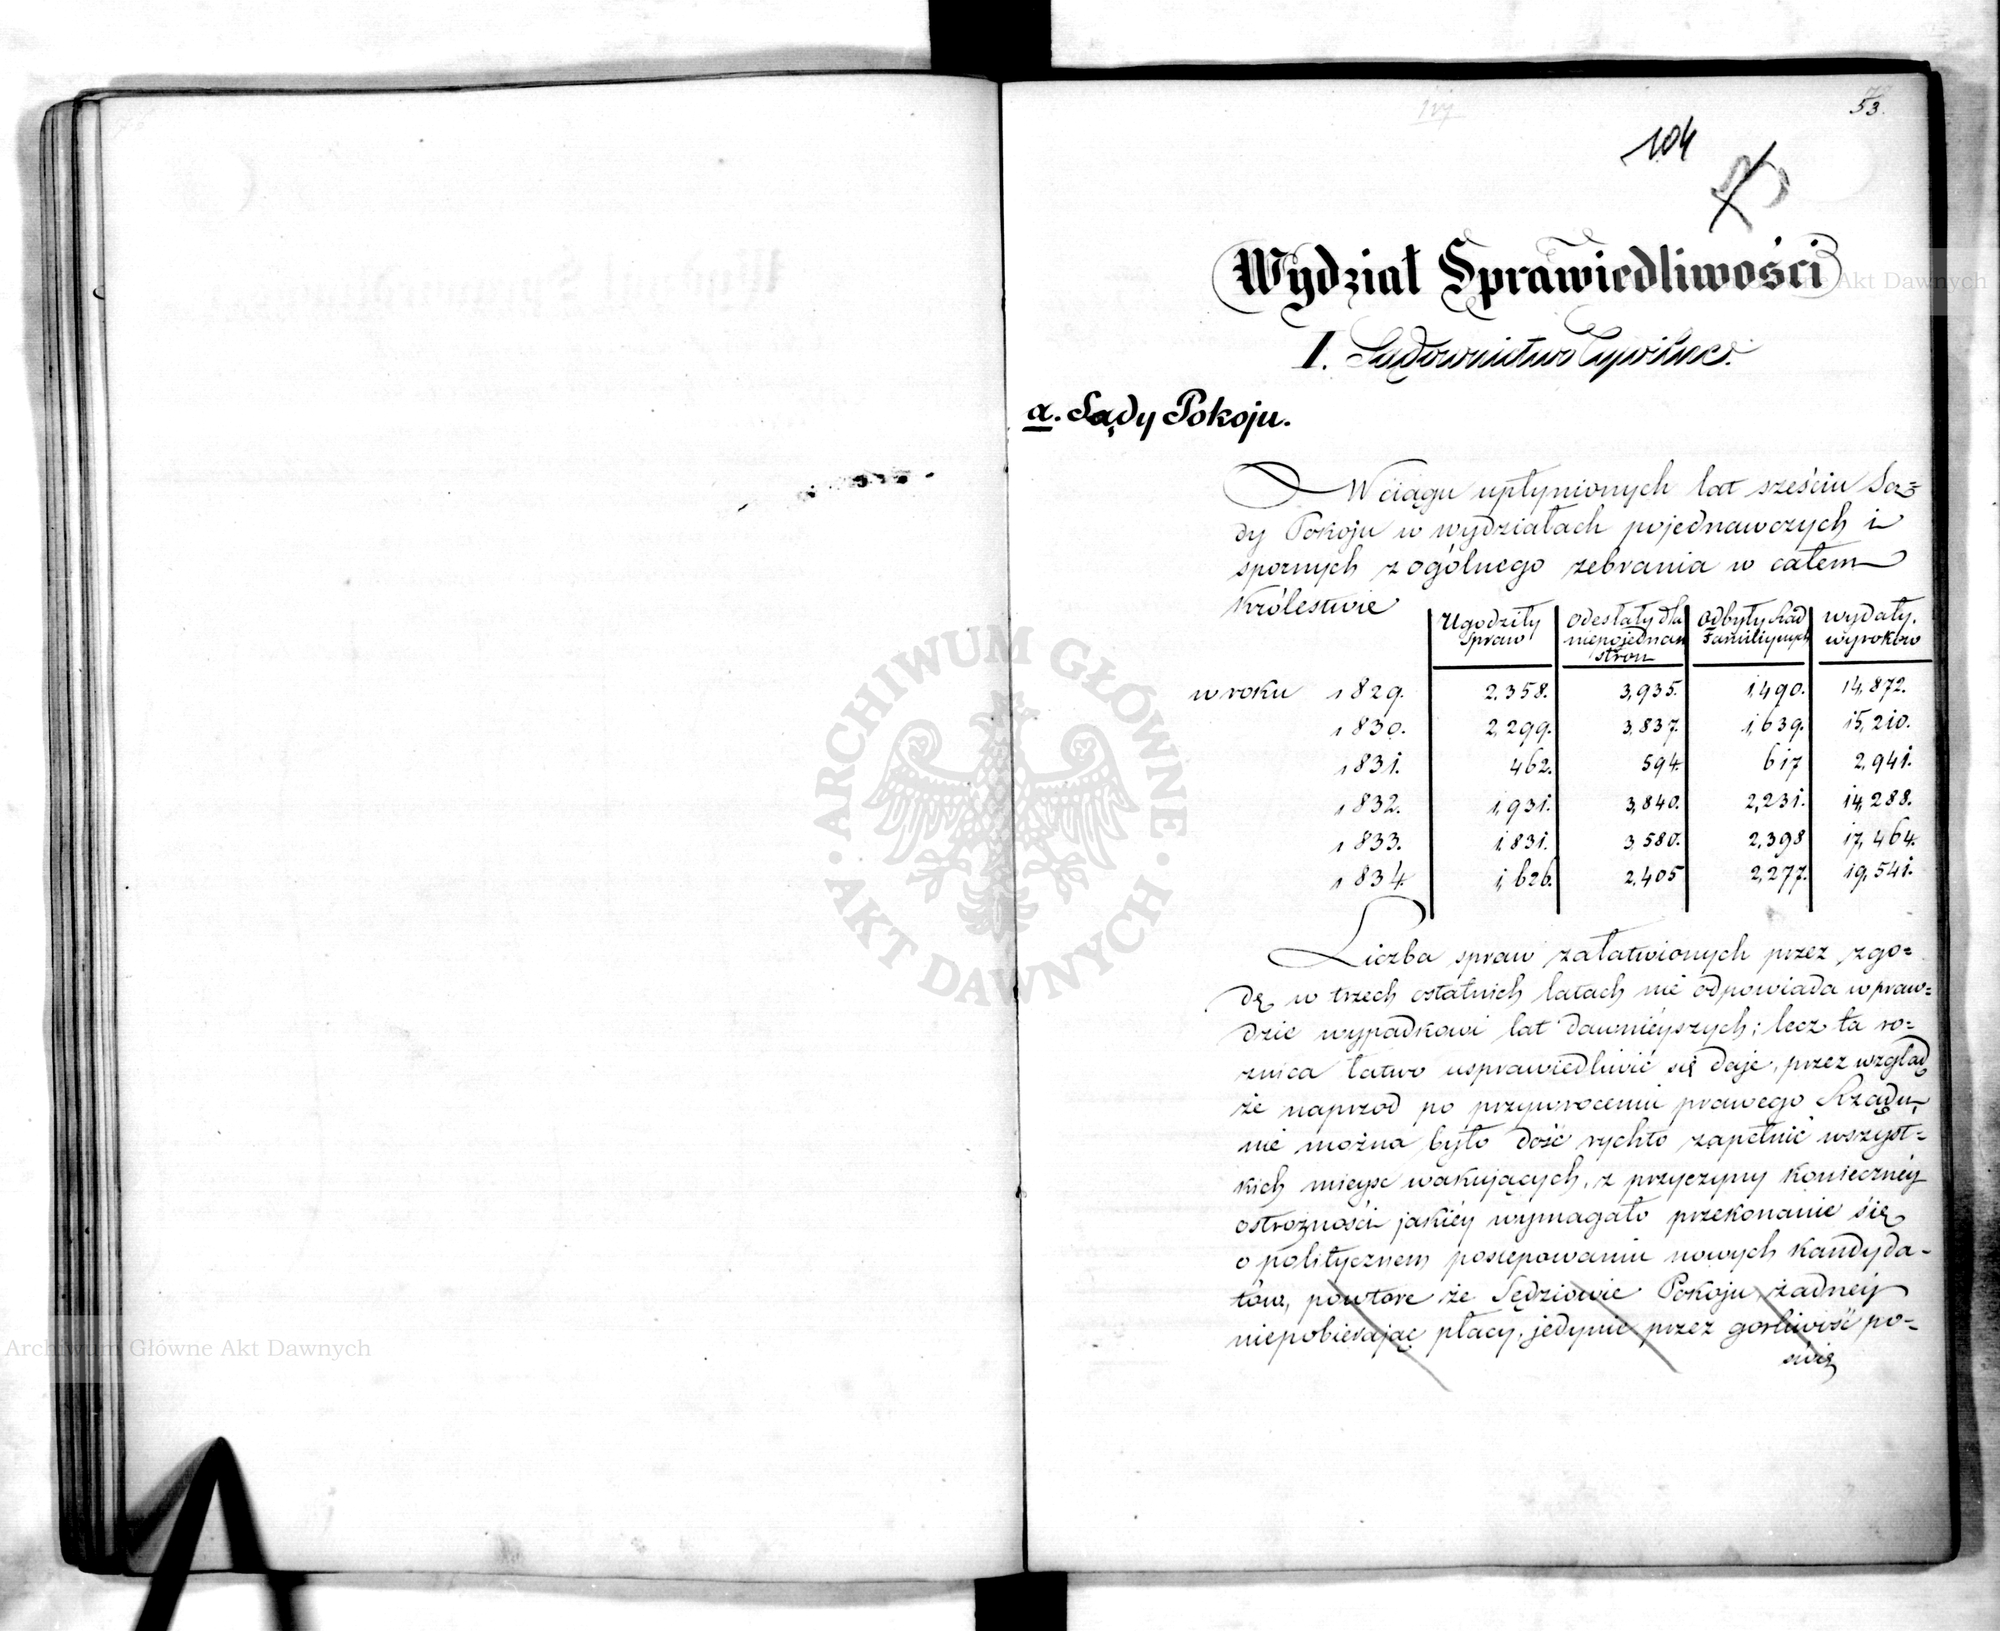 53.
104
Wydział Sprawiedliwości
I. Sądownictwo Cywilne.
a. Sądy Pokoju.
W ciągu upłynionych lat sześciu Są=
dy Pokoju w wydziałach pojednawczych i
spornych z ogólnego zebrania w całem
Królestwie
Ugodziły spraw | odesłały dla niepojednan stron | Odbyły Rad Familijnych | wydały wyroków
w roku 1829. 2.358. 3,935. 1,490. 14,872.
1830. 2,299. 3,837. 1,639. 15,210.
1831. 462. 594. 617 2,941.
1832. 1,931. 3,840. 2,231. 14,288.
1833. 1.831. 3,580. 2,398 17,464.
1834. 1,626. 2,405 2,277. 19,541.
Liczba spraw załatwionych przez zgo=
dę w trzech ostatnich latach nie odpowiada wpraw=
dzie wypadkowi lat dawnieyszych; lecz ta ro=
znica łatwo usprawiedliwić się daje, przez wzgląd
że naprzod po przywroceniu prawego Rządu,
nie można było dość rychło zapełnić wszyst=
kich mieysc wakujących, z przyczyny konieczney
ostrożności jakiéy wymagało przekonanie się
o politycznem postępowaniu nowych kandyda=
tów, powtore że Sędziowie Pokoju, żadnéy
niepobierając płacy, jedynie przez gorliwość po=
świę
ARCHIWUM GŁÓWNE AKT DAWNYCH
Archiwum Główne Akt Dawnych
Główne Akt Dawnych